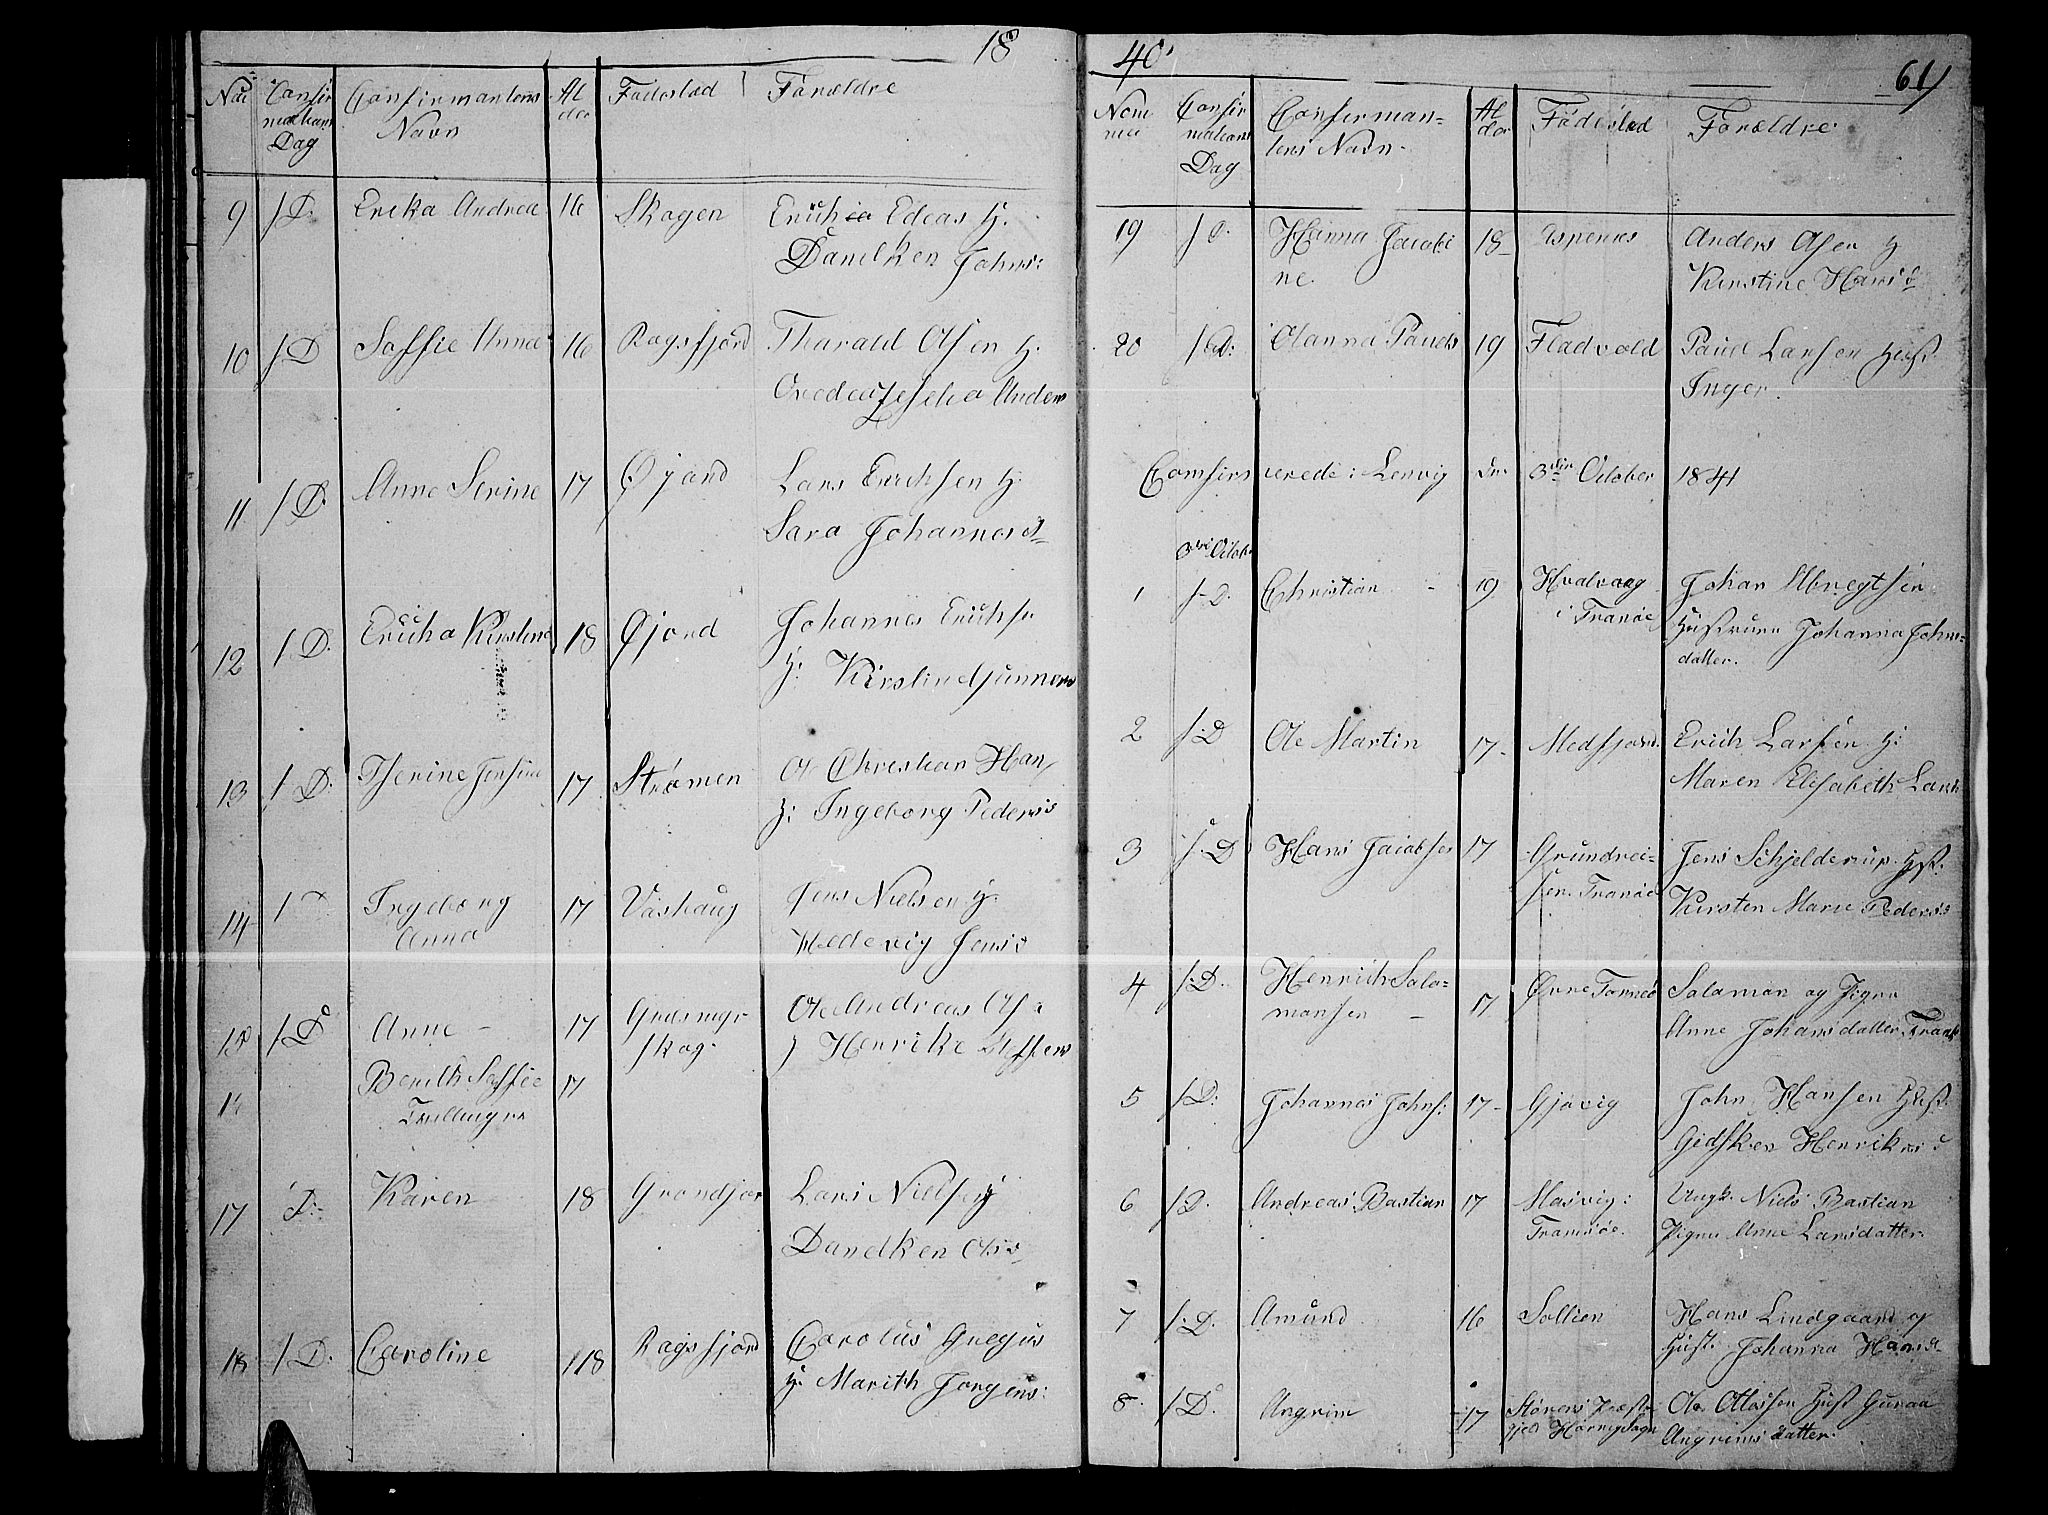 18
No
Confir
mations
Dag
Confirmantens
Navn
Al
der
Fødestad
Forældre
9 D. Erika Andrea 16 Skogen
Danilken Johns:
10 D Soffie Anna 16 Rogsfjord Tharald Olsen H:
Anders
11 D. Anne Serine 17 Øjord Lars Erichsen H:
Sara Johannesd
12 D. Ericha Kirstine 18 Øjord Johannes Erichs
H: Kirstine Gunners
13 D. Therine Jensine 17 Strømen Ol Christian Han
H: Ingeborg Peders
14 Ingeborg
Anna 17 Vashaug Jens Nielsen H:
Hedevig Jens
15 D Anne 17
skog. Ole Andreas Ols
Henrike Steffens
Berith Soffie
Tvillinger 17
17 D: Karen 18 Grondfjor Lars Nielsen
Danelken Ols
18 D. Caroline 18 Rogsfjord Carolus Gregus
H: Marith Jørgens:
40
61
Nom
mer
Confir
mations
Dag
Confirman=
tens Navn.
Al
der
Fødestad
Forældre
19 D. Hanna Jacobi
ne. 18 Espenes Anders Olsen H
Kirstine Hans d
20 D: Olanna Pauls 19 Fladvold Paul Larsen Hust
Inger.
Confirmerede i Lenvig den 3die October 1841
3die Octob
1 D. Christian 19 Hvalvaag
i Tranøe Johan Albregtsen
Hustrue Johanna Johns=
datter.
2 D Ole Martin 17 Medfjord. Erich Larsen H:
Maren Elisabeth Lars
3 D Hans Jacobsen 17 Grundrei=
sen. Tranøe Jens Schjelderup. Hust.
Kirsten Marie Peders
4 D. Henrich Salo=
monsen 17 Salamon og Pigen
Anne Johansdatter
5 D: Johannes Johns: 17 Gjøvig John Hansen Hust
Gidsken Henriks d
6 D. Andreas Bastian 17 Masvig:
Tromsøe. Ungk. Niels Bastian
Pigen Anne Larsdatter
7 D. Amund 16 Sollien Hans Lindgaard og
Hust. Johanna Hansd
8 D. Angrim 17 Størens Præste
gjeld Ole Ottesen Hust Guroe
Angrimsdatter.